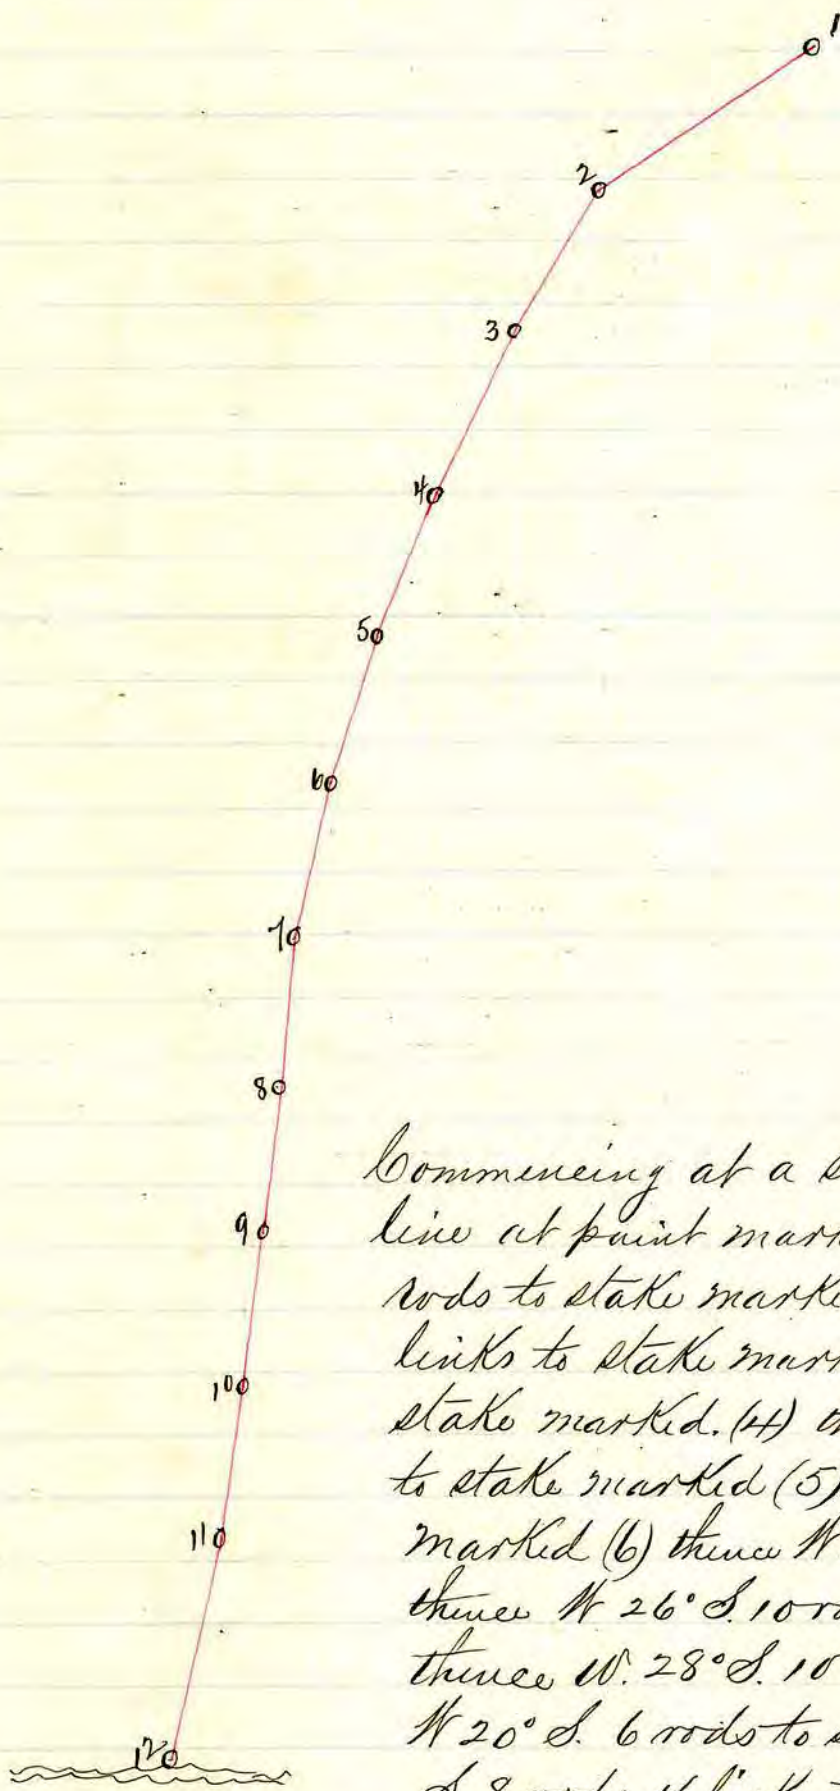 1
2
3
4
5
6
7
8
9
10
11
12
Commencing at a
line at point
rods to stake
links to stake
stake marked. (4)
to stake marked (5)
marked (6) thence W
thence W 26° S. 10
thence W. 28° S. 10
W 20° S. 6 rods to
S. 8 rods